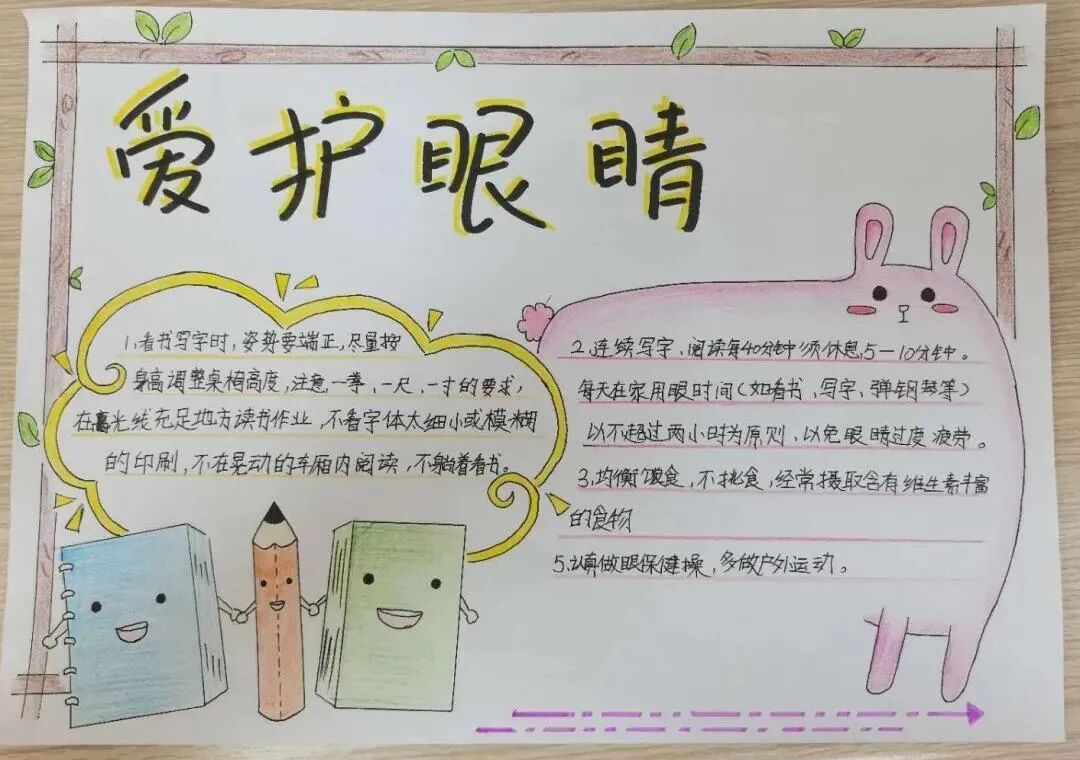 爱护眼睛
1、看书写字时，姿势要端正，尽量按
身高调整桌椅高度，注意，一拳，一尺，一寸的要求，
在光线充足地方读书作业，不看字体太细小或模糊
的印刷，不在晃动的车厢内阅读，不躺着看书。
2、连续写字、阅读每40分钟须休息，5—10分钟。
每天在家用眼时间（如看书、写字、弹钢琴等）
以不超过两小时为原则、以免眼睛过度疲劳。
3、均衡饮食，不挑食，经常摄取含有维生素丰富
的食物
5、认真做眼保健操，多做户外运动。